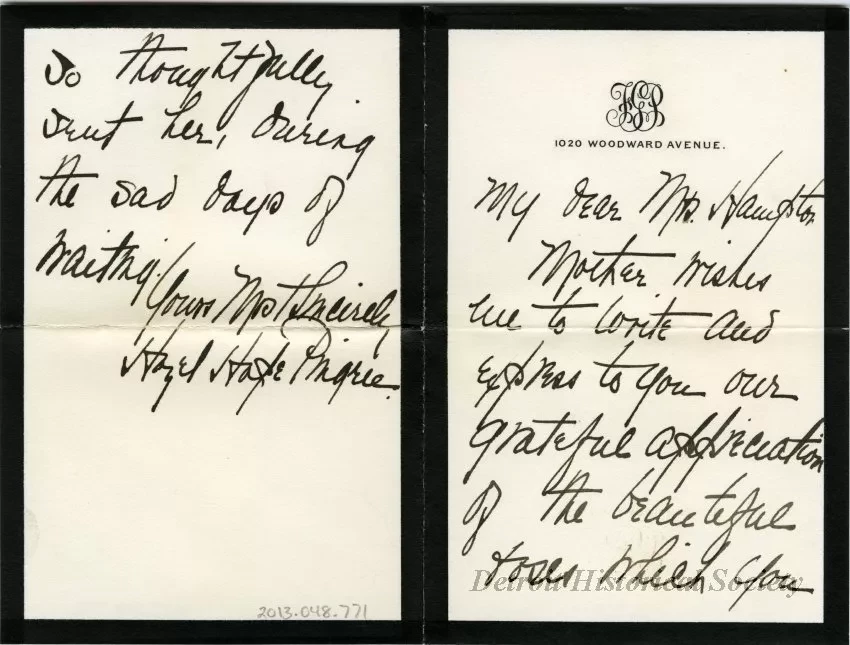 1020 WOODWARD AVENUE.
My dear Mrs. Hampton
Mother wishes
me to write and
express to you our
grateful appreciation
of the beautiful
roses which you
Detroit Historical Society
so thoughtfully
sent her, during
the sad days of
waiting.
Yours Most Sincerely,
Hazel Hope Pingree.
2013.048.771